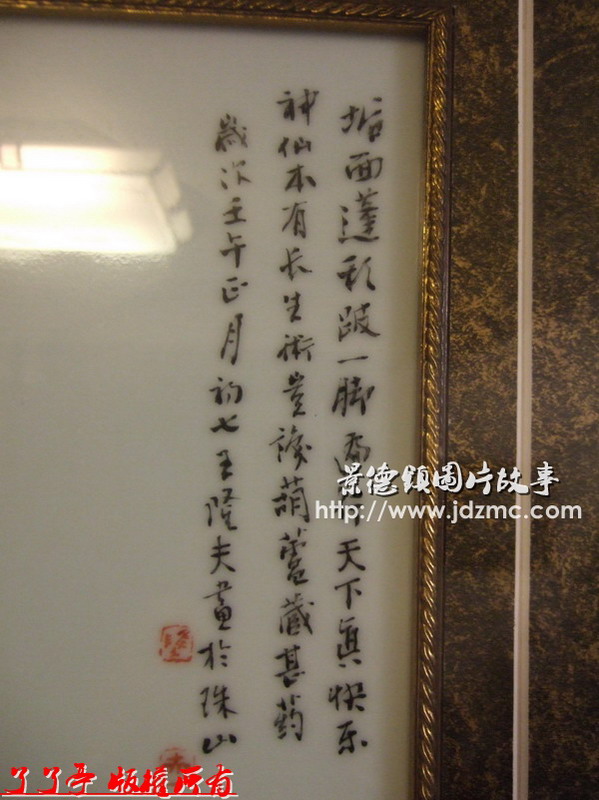 垢面蓬形跛一脚天下真快乐
神仙本有长生術豈識葫蘆藏甚药
歲次壬午正月初七王隆夫畫於珠山
景德鎮圖片故事
http://www.jdzmc.com
了了亭 版權所有